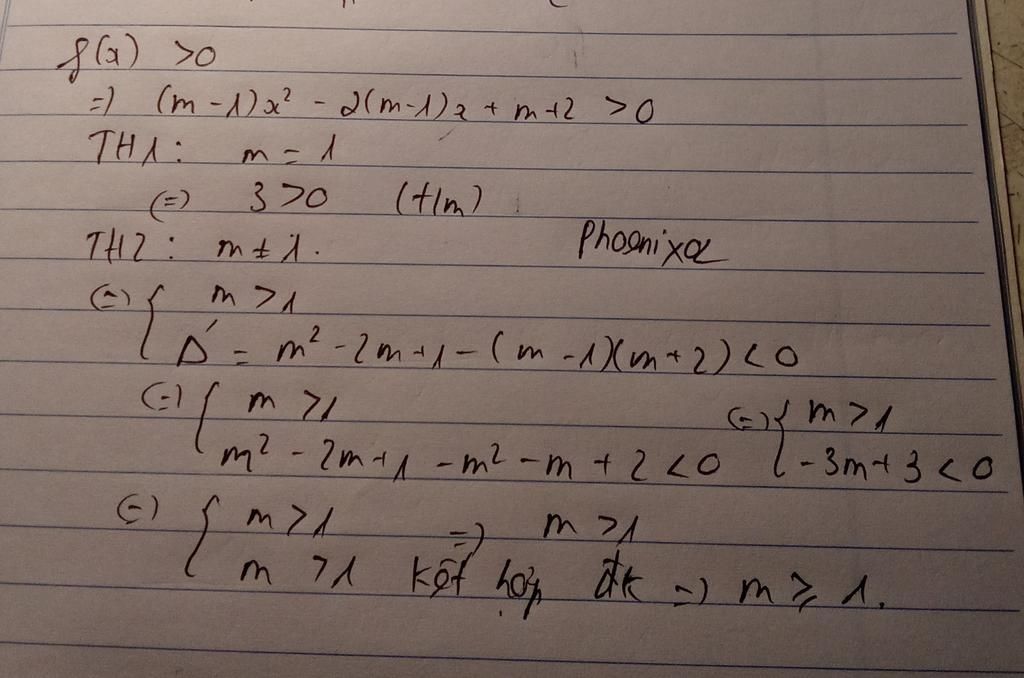 f(x) >0
=) (m-1)x² - 2(m-1)x + m+2 >0
TH1: m = 1
(=) 3>0 (t/m)
TH2: m ≠ 1. Phoenixa
(=) { m >1
Δ' = m² - 2m+1 - (m-1)(m+2) < 0
(=) { m >1 (=) { m >1
m² - 2m+1 - m² - m + 2 <0 -3m+3 < 0
(=) { m >1 =) m >1
m >1 kết hợp đk =) m ≥ 1.